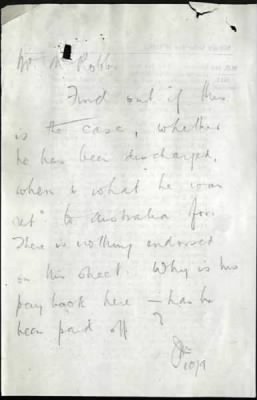 Mr M Robb
Find out if this
is the case, whether
he has been discharged,
when & what he was
"ret" to Australia for.
There is nothing endorsed
on his sheet. Why is his
pay book here – has he
been paid off ?
10/9